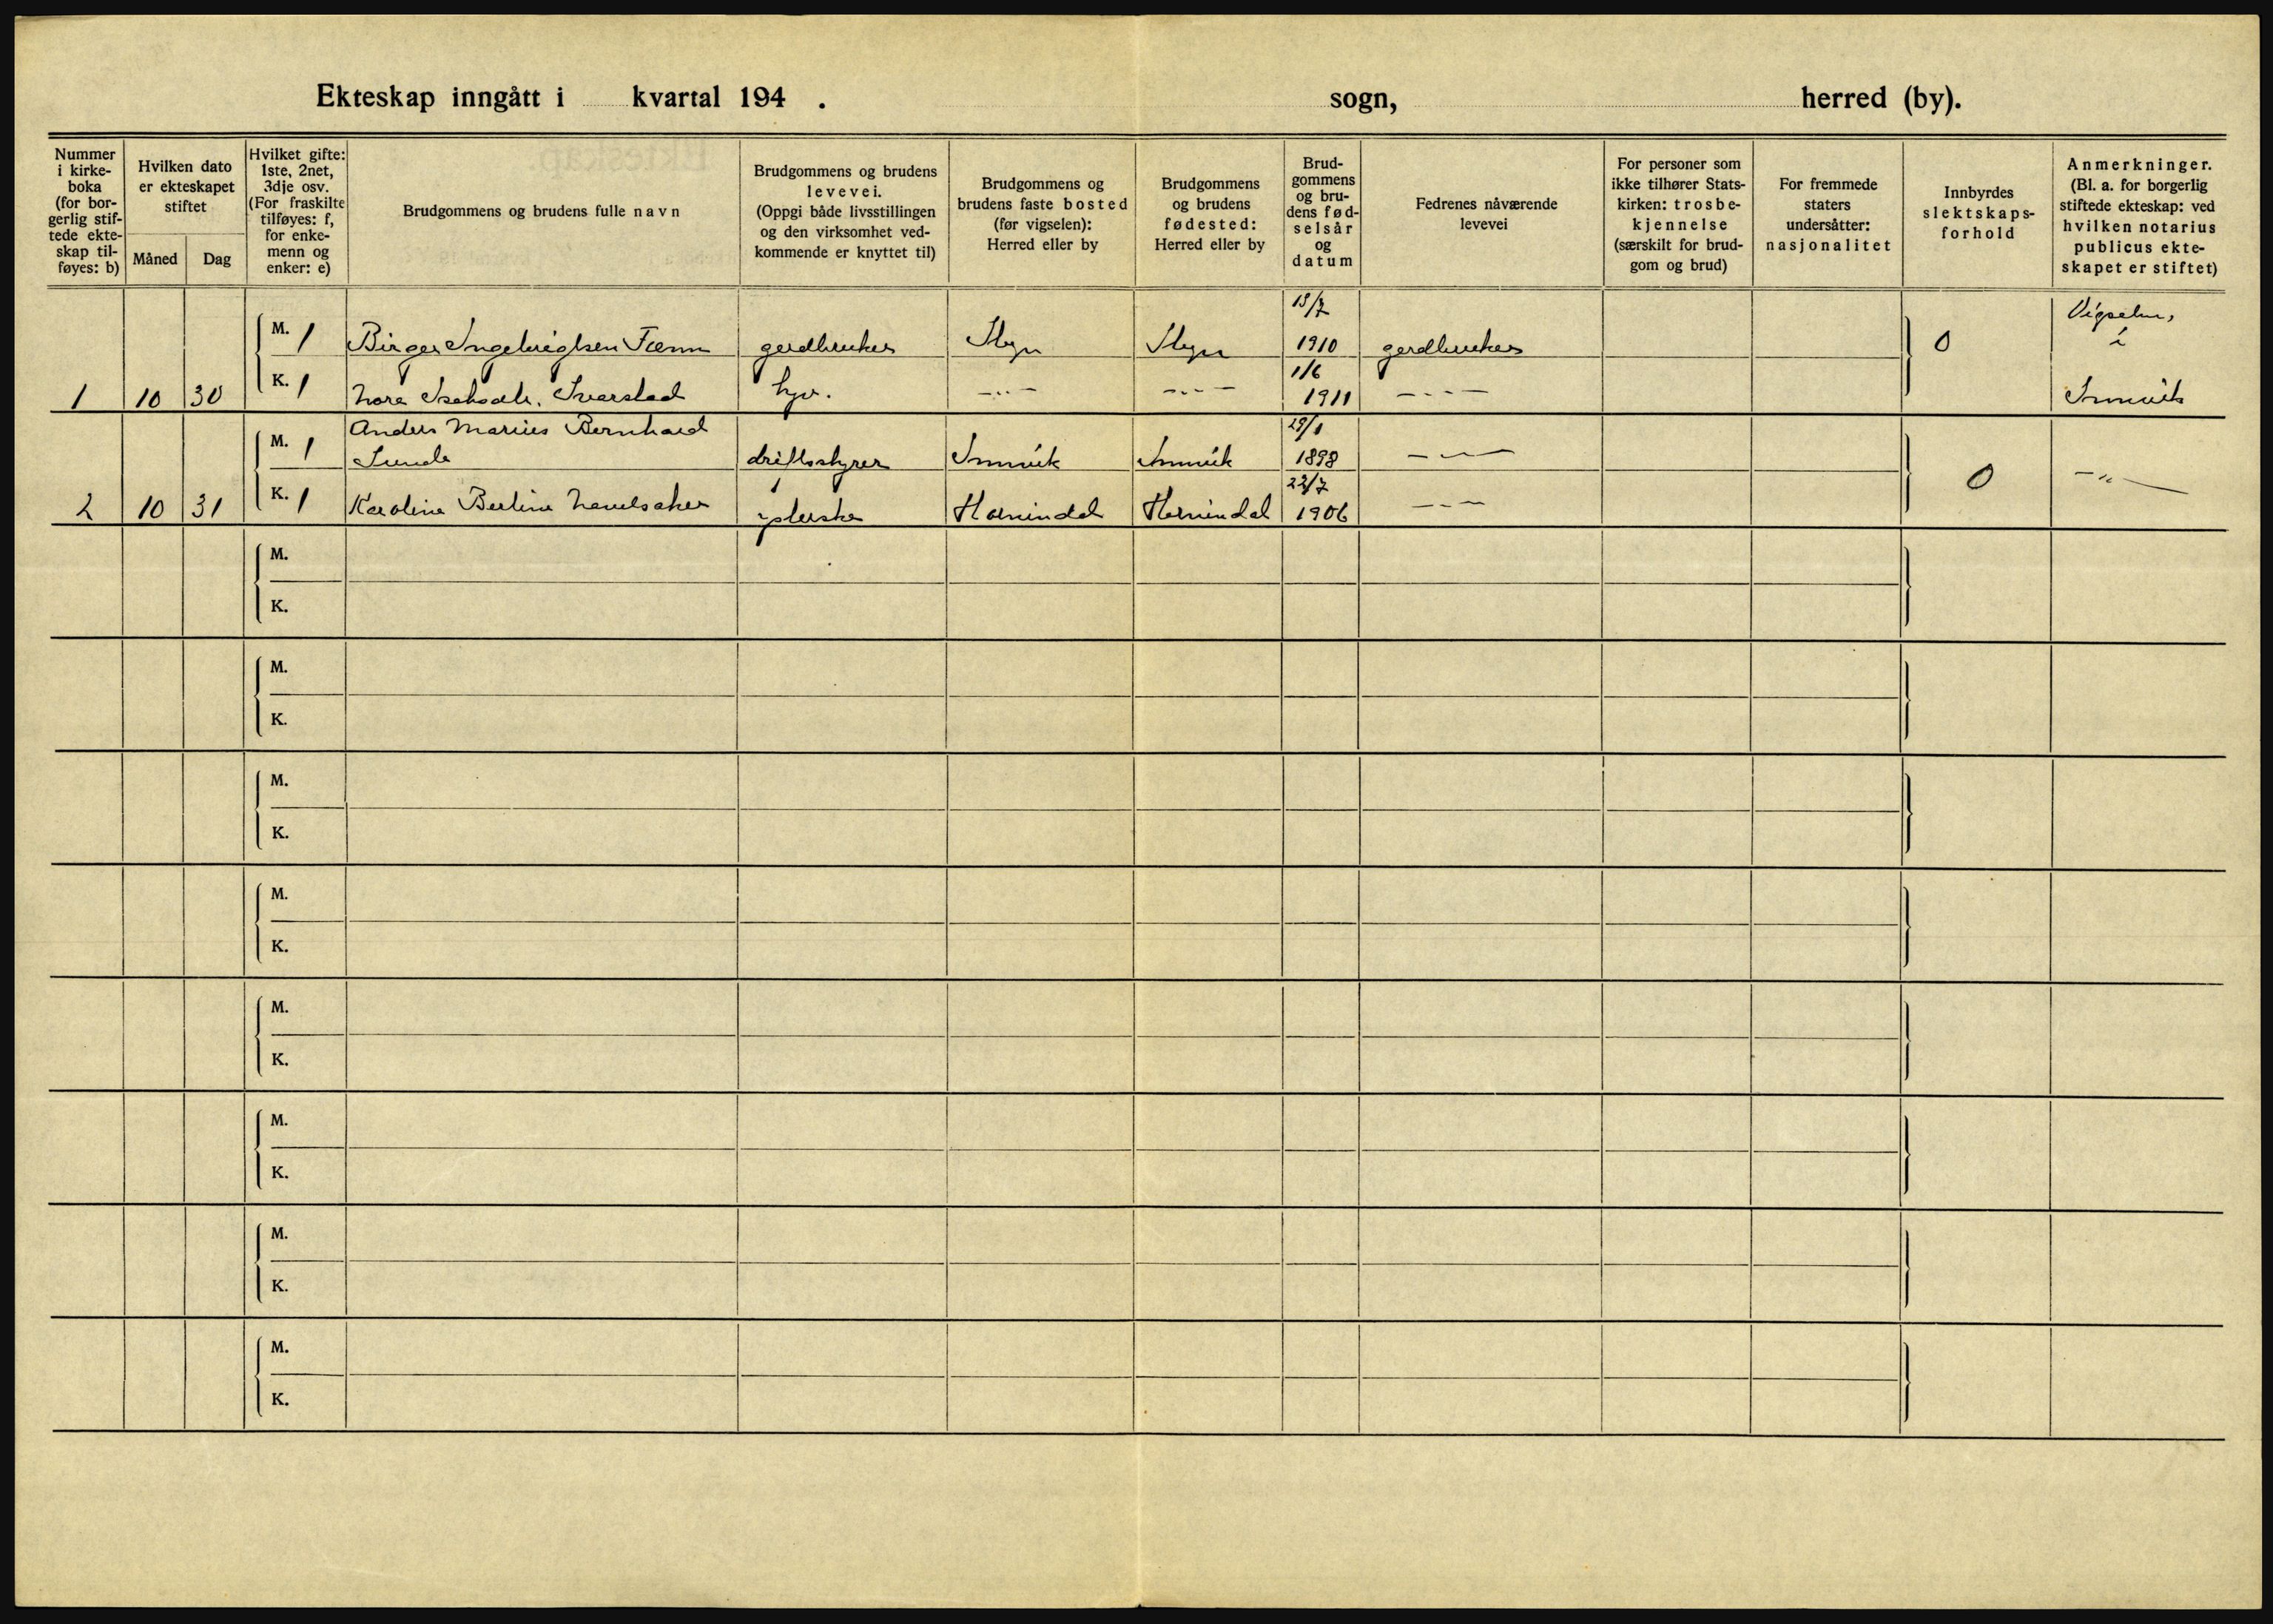 Ekteskap inngått i kvartal 194 . sogn, herred (by).
Nummer
i kirke-
boka
(for bor-
gerlig stif-
tede ekte-
skap til-
føyes: b)
Hvilken dato
er ekteskapet
stiftet
Måned Dag
Hvilket gifte:
1ste, 2net,
3dje osv.
(For fraskilte
tilføyes: f,
for enke-
menn og
enker: e)
Brudgommens og brudens fulle navn
Brudgommens og brudens
levevei.
(Oppgi både livsstillingen
og den virksomhet ved-
kommende er knyttet til)
Brudgommens og
brudens faste bosted
(før vigselen):
Herred eller by
Brudgommens
og brudens
fødested:
Herred eller by
Brud-
gommens
og bru-
dens fød-
selsår
og
datum
Fedrenes nåværende
levevei
For personer som
ikke tilhører Stats-
kirken: trosbe-
kjennelse
(særskilt for brud-
gom og brud)
For fremmede
staters
undersåtter:
nasjonalitet
Innbyrdes
slektskaps-
forhold
Anmerkninger.
(Bl. a. for borgerlig
stiftede ekteskap: ved
hvilken notarius
publicus ekte-
skapet er stiftet)
M. 1 Birger Ingebrigtsen gardbruker Stryn Stryn 1910 gardbruker 0 i
1 10 30 K. 1 1/6 1911 Innvik
M. 1 Anders Marius Bernhard
Sunde driftsstyrer Innvik Innvik 1898 0
2 10 31 K. 1 Karoline Berline Hornindal Hornindal 22/7 1906
M.
K.
M.
K.
M.
K.
M.
K.
M.
K.
M.
K.
M.
K.
M.
K.